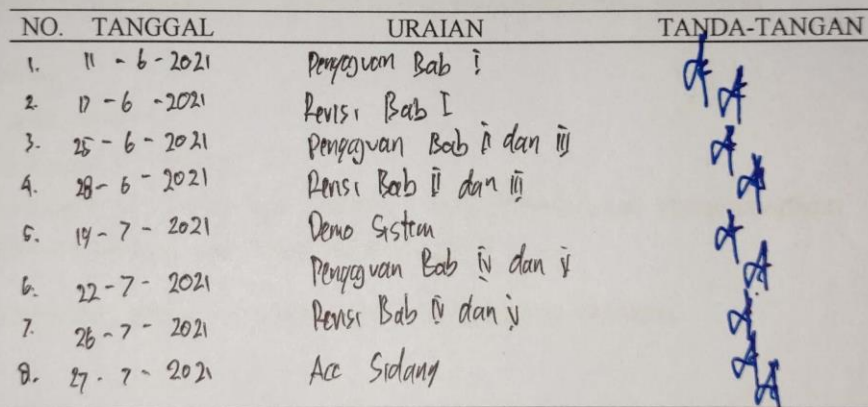 NO. TANGGAL URAIAN TANDA-TANGAN
1. 11 - 6 - 2021 Pengajuan Bab I
2. 17 - 6 - 2021 Revisi Bab I
3. 25 - 6 - 2021 Pengajuan Bab II dan III
4. 28 - 6 - 2021 Revisi Bab II dan III
5. 14 - 7 - 2021 Demo Sistem
6. 22 - 7 - 2021 Pengajuan Bab IV dan V
7. 26 - 7 - 2021 Revisi Bab IV dan V
8. 27 - 7 - 2021 Acc Sidang